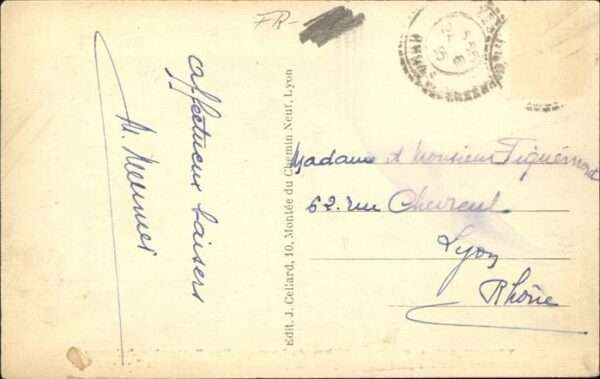 FR-
affectueux baisers
M. Meunier
Edit. J. Cellard, 10, Montée du Chemin Neuf, Lyon
Madame et Monsieur
62. rue Chevreul
Lyon
Rhône